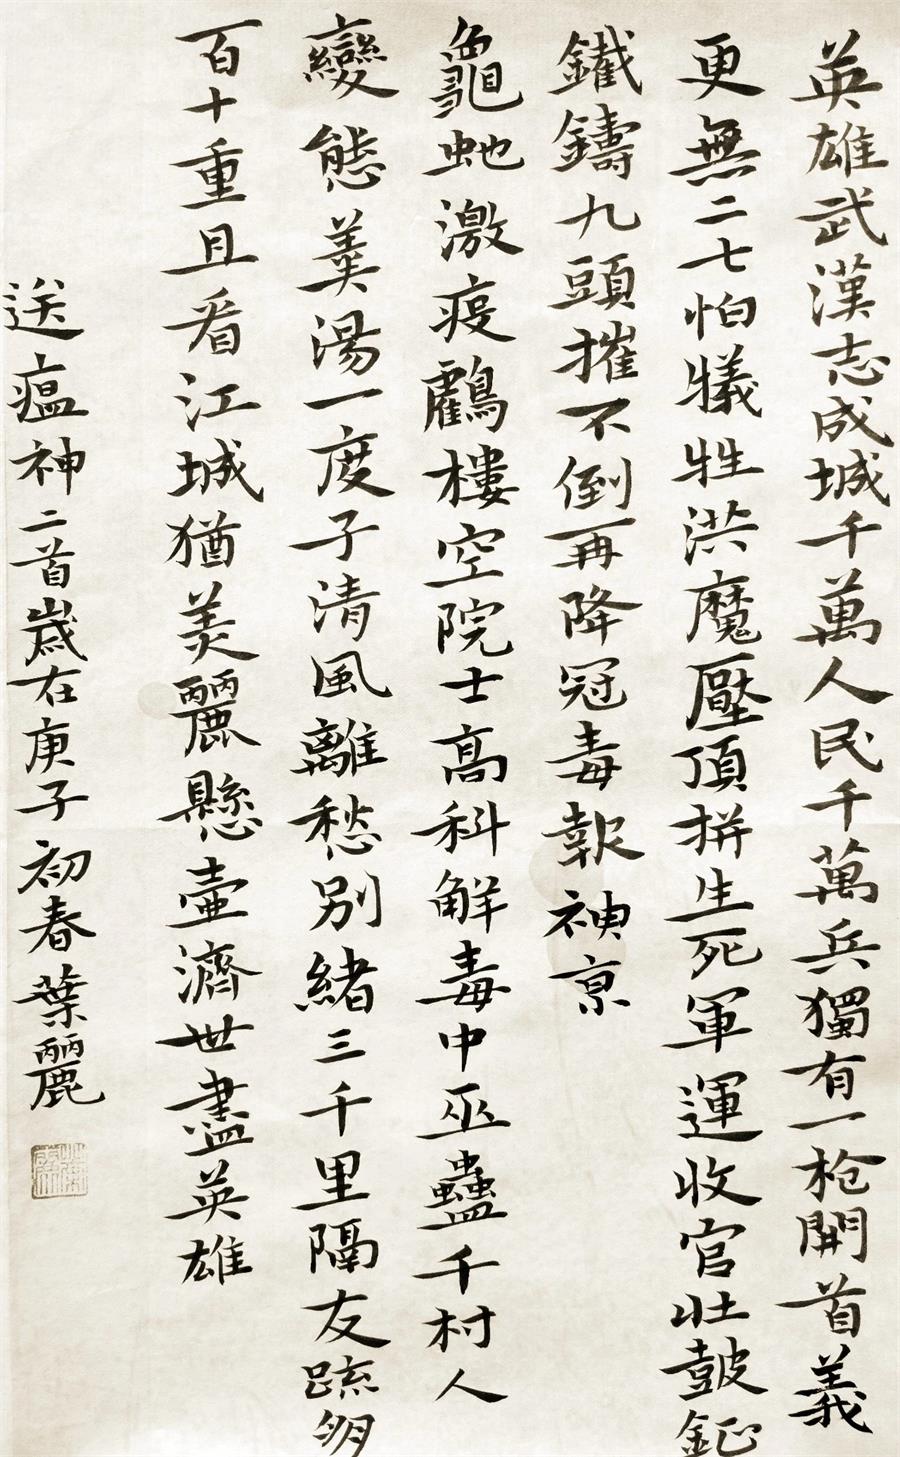 英雄武漢志成城千萬人民千萬兵獨有一枪開首義
更無二七怕犧牲洪魔壓頂拼生死軍運收官壮皷鉦
鐵鑄九頭摧不倒再降冠毒報神亰
龜虵激疫鸖樓空院士高科解毒中巫蠱千村人
變態羹湯一度子清風離愁別緒三千里隔友疏朋
百十重且看江城猶美麗懸壺濟世盡英雄
送瘟神二首歲在庚子初春葉麗